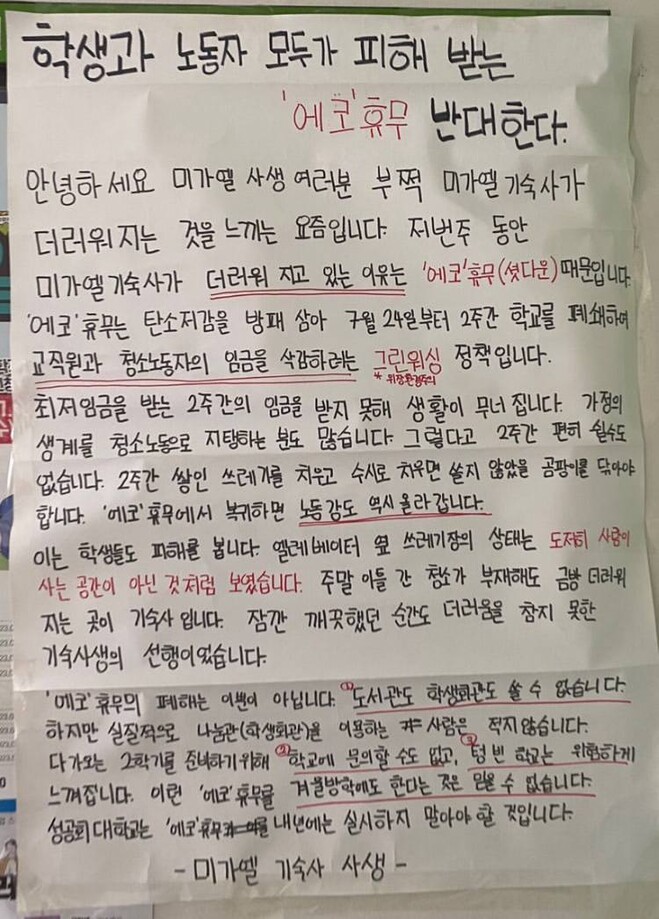 학생과 노동자 모두가 피해 받는
'에코'휴무 반대한다.
안녕하세요 미가엘 사생 여러분 부쩍 미가엘 기숙사가
더러워지는 것을 느끼는 요즘입니다. 저번주 동안
미가엘기숙사가 더러워 지고 있는 이유는 '에코'휴무(셧다운)때문입니다.
'에코'휴무는 탄소저감을 방패 삼아 7월 24일부터 2주간 학교를 폐쇄하여
교직원과 청소노동자의 임금을 삭감하려는 그린워싱 정책입니다.
* 위장환경주의
최저임금을 받는 2주간의 임금을 받지 못해 생활이 무너집니다. 가정의
생계를 청소노동으로 지탱하는 분도 많습니다. 그렇다고 2주간 편히 쉴수도
없습니다. 2주간 쌓인 쓰레기를 치우고 수시로 치우면 쓸지 않았을 곰팡이를 닦아야
합니다. '에코'휴무에서 복귀하면 노동강도 역시 올라갑니다.
이는 학생들도 피해를 봅니다. 엘레베이터 옆 쓰레기장의 상태는 도저히 사람이
사는 공간이 아닌 것처럼 보였습니다. 주말 이틀 간 청소가 부재해도 금방 더러워
지는 곳이 기숙사 입니다. 잠깐 깨끗했던 순간도 더러움을 참지 못한
기숙사생의 선행이었습니다.
'에코'휴무의 폐해는 이뿐이 아닙니다. ①도서관도 학생회관도 쓸 수 없습니다.
하지만 실질적으로 나눔관(학생회관)을 이용하는 사람은 적지 않습니다.
다가오는 2학기를 준비하기 위해 ②학교에 문의할 수도 없고, ③텅 빈 학교는 위험하게
느껴집니다. 이런 '에코'휴무를 겨울방학에도 한다는 것은 믿을 수 없습니다.
성공회대학교는 '에코'휴무를 내년에는 실시하지 말아야 할 것입니다.
- 미가엘 기숙사 사생 -